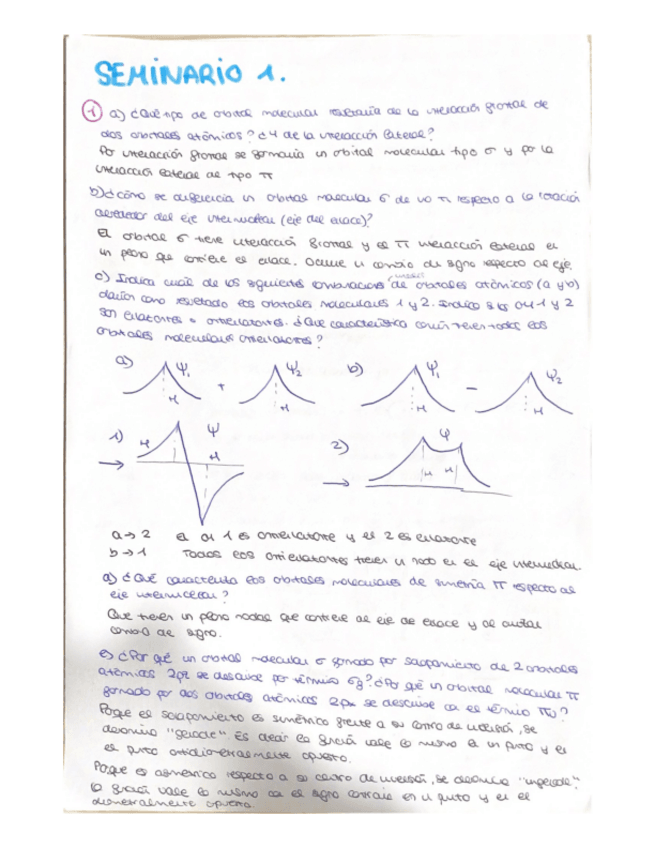 SEMINARIO 1.
1 a) ¿Qué tipo de orbital molecular resultaría de la interacción frontal de
dos orbitales atómicos? ¿Y de la interacción lateral?
Por interacción frontal se formaría un orbital molecular tipo σ y por la
interacción lateral de tipo π
b) ¿Cómo se diferencia un orbital molecular σ de uno π respecto a la rotación
alrededor del eje internuclear (eje del enlace)?
El orbital σ tiene interacción frontal y el π interacción lateral en
un plano que contiene el enlace. Ocurre un cambio de signo respecto al eje.
c) Indica cuál de las siguientes combinaciones lineales de orbitales atómicos (a y b)
darían como resultado los orbitales moleculares 1 y 2. Indica si los OM 1 y 2
son enlazantes o antienlazantes. ¿Qué característica común tienen todos los
orbitales moleculares antienlazantes?
a) Ψ1 + Ψ2 b) Ψ1 - Ψ2
H H H H
1) H Ψ H 2) Ψ H H
a → 2 El OM 1 es antienlazante y el 2 es enlazante
b → 1 Todos los antienlazantes tienen un nodo en el eje internuclear.
d) ¿Qué caracteriza los orbitales moleculares de simetría π respecto al
eje internuclear?
Que tienen un plano nodal que contiene al eje de enlace y al
cambio de signo.
e) ¿Por qué un orbital molecular σ formado por solapamiento de 2 orbitales
atómicos 2pz se describe por término σg? ¿Por qué un orbital molecular π
formado por dos orbitales atómicos 2px se describe con el término πu?
Porque el solapamiento es simétrico frente a su centro de inversión, se
denomina "gerade". Es decir la función vale lo mismo en un punto y en
el punto diametralmente opuesto.
Porque es asimétrico respecto a su centro de inversión, se denomina "ungerade".
la función vale lo mismo con el signo contrario en un punto y en el
diametralmente opuesto.